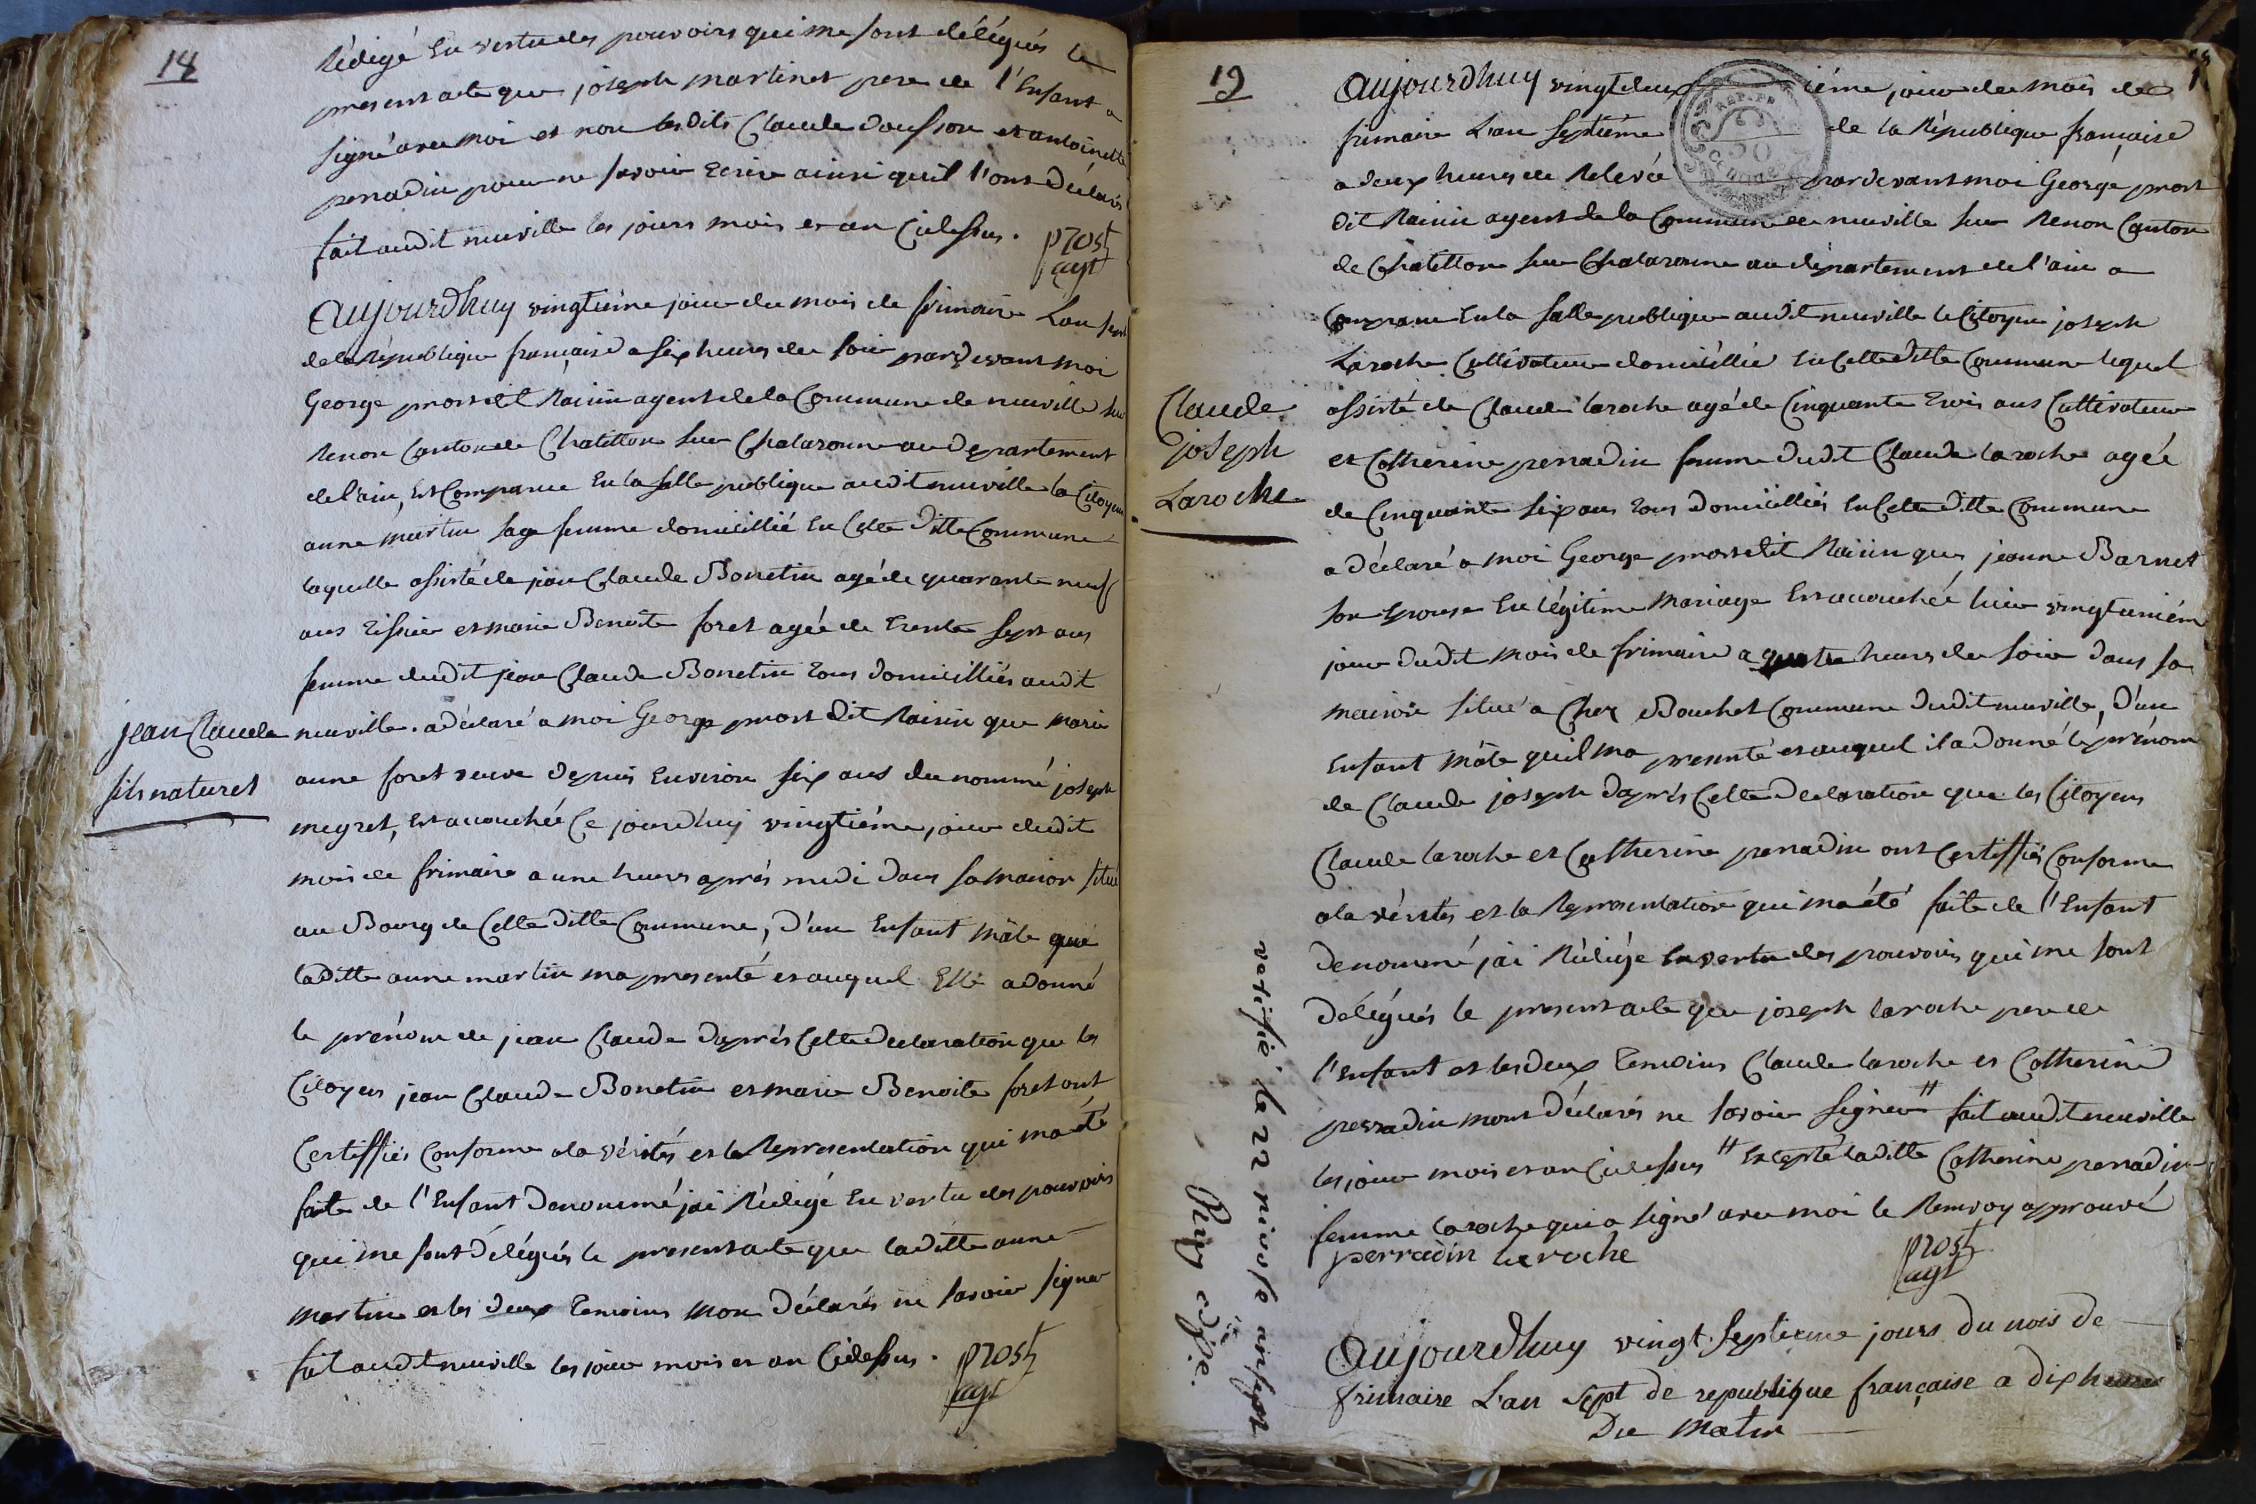 14
Rédigé En vertu des pouvoirs qui me sont délégués le
present acte que joseph martinet pere de l'Enfant a
signé avec moi et non lesdits Claude et antoinette
perradin pour ne savoir Ecrire ainsi quil l'ont déclarés
fait audit neuville les jours mois et an Cidessus .
prost
agt
Aujourdhuy vingtiéme jour du mois de frimaire Lan sept
de la République française a six heures du soir pardevant moi
George prost dit Raisin agent de la Commune de neuville sur
Renon Canton de Chatillon sur Chalaronne au département
de l'ain, Est Comparue En la salle publique audit neuville la Citoyene
anne martin sage femme domicillié En Cette ditte Commune
laquelle assisté de jean Claude Bonetin agé de quarante neuf
ans tissier et marie Benoite foret agée de trente sept ans
femme dudit jean Claude Bonetin tous domicilliés audit
neuville . a déclaré a moi George prost dit Raisin que marie
anne foret veuve depuis Environ six ans du nommé joseph
megret, Est accouchée Ce jourdhuy vingtiéme jour dudit
mois de frimaire a une heure aprés midi dans sa maison situé
au Bourg de Cette ditte Commune, d'un Enfant mâle que
laditte anne martin ma presenté et auquel Elle a donné
le prénom de jean Claude d'aprés Cette declaration que les
Citoyens jean Claude Bonetin et marie Benoite foret ont
Certiffiés Conforme a la vérités et la Représentation qui ma été
faite de l'Enfant denommé jai Rédigé En vertu des pouvoirs
qui me sont délégués le present acte que laditte anne
martin et les deux temoins mon déclarés ne savoir signer
fait audit neuville les jour mois et an Cidessus .
prost
agt
jean Claude
fils naturel
19
Aujourdhuy vingt deuxiéme jour du mois de
frimaire Lan Septiéme de la République française
a deux heures de Relevé pardevant moi George prost
dit Raisin agent de la Commune de neuville sur Renon Canton
de Chatillon sur Chalaronne au département de l'ain a
Comparu En la salle publique audit neuville le Citoyen joseph
Laroche Cultivateur domicillié En Cette ditte Commune lequel
assisté de Claude laroche agé de Cinquante trois ans Cultivateur
et Catherine perradin femme dudit Claude laroche agée
de Cinquante six ans tous domicilliés En Cette ditte Commune
a déclaré a moi George prost dit Raisin que jeanne Barnet
son Epouse En légitime mariage Est accouchée hier vingt uniéme
jour dudit mois de frimaire a quatre heures du soir dans sa
maison situé a Chez Bouchet Commune dudit neuville, d'un
Enfant mâle quil ma presenté et auquel il a donné le prénom
de Claude joseph d'aprés Cette declaration que les Citoyens
Claude laroche et Catherine perradin ont Certiffiés Conforme
a la vérités et la Représentation qui ma été faite de l'Enfant
denommé jai Rédigé En vertu des pouvoirs qui me sont
délégués le present acte que joseph laroche pere de
l'Enfant et les deux temoins Claude laroche et Catherine
perradin mont déclarés ne savoir signer # fait audit neuville
les jour mois et an Cidessus # Excepté laditte Catherine perradin
femme laroche qui a signé avec moi le Renvoy approuvé
perradin laroche
prost
agt
Claude
joseph
Laroche
verifié le 22 nivose an sept
Aujourdhuy vingt Septieme jours du mois de
frimaire L'an sept de republique française a dix heures
Du Matin